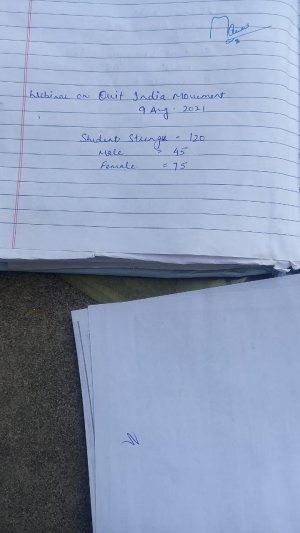 Webinar on Quit India Movement
9 Aug. 2021
Student Strength = 120
Male = 45
Female = 75